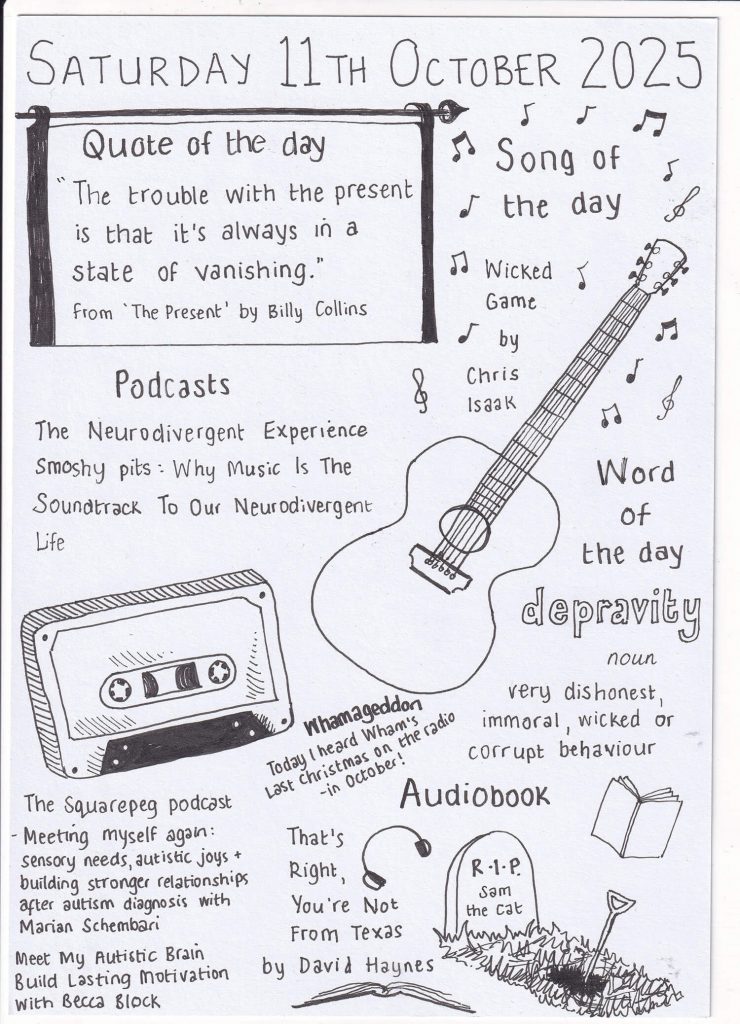 SATURDAY 11TH OCTOBER 2025
Quote of the day
"The trouble with the present
is that it's always in a
state of vanishing."
from 'The Present' by Billy Collins
Song of
the day
Wicked
Game
by
Chris
Isaak
Podcasts
The Neurodivergent Experience
Smoshy pits: Why Music Is The
Soundtrack To Our Neurodivergent
Life
Word
of
the day
depravity
noun
very dishonest,
immoral, wicked or
corrupt behaviour
Whamageddon
Today I heard Wham's
Last Christmas on the radio
-in October!
The Squarepeg podcast
- Meeting myself again:
sensory needs, autistic joys +
building stronger relationships
after autism diagnosis with
Marian Schembari
Meet My Autistic Brain
Build Lasting Motivation
with Becca Block
Audiobook
That's
Right,
You're Not
From Texas
by David Haynes
R.I.P.
Sam
the Cat